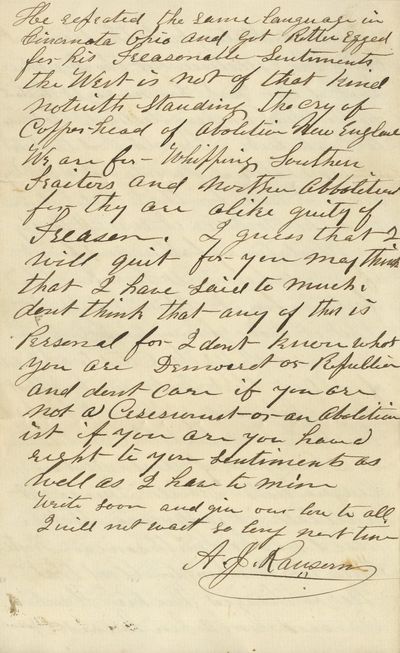 He repeated the same language in
Cincinata Ohio and got Rotten Egged
for his Treasonable Sentiments
the West is not of that kind
notwith Standing The cry of
Copper-head of abolition New England
We are for - Whipping Southern
Traitors and northern Abbolition
for they are alike guilty of
Treason. I guess that I
will quit for you may think
that I have said to much.
dont think that any of this is
Personal for I dont know what
you are Democrat or Republican
and dont care if you are
not a Cecesionist or an Abolition
ist if you are you have a
right to your sentiments as
well as I have to mine
Write soon and give our love to all
I will not wait so long next time
A. J. Ransom